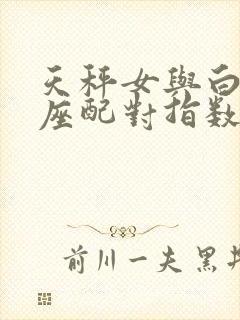 天秤女與白
座配對指数
前川一夫黑